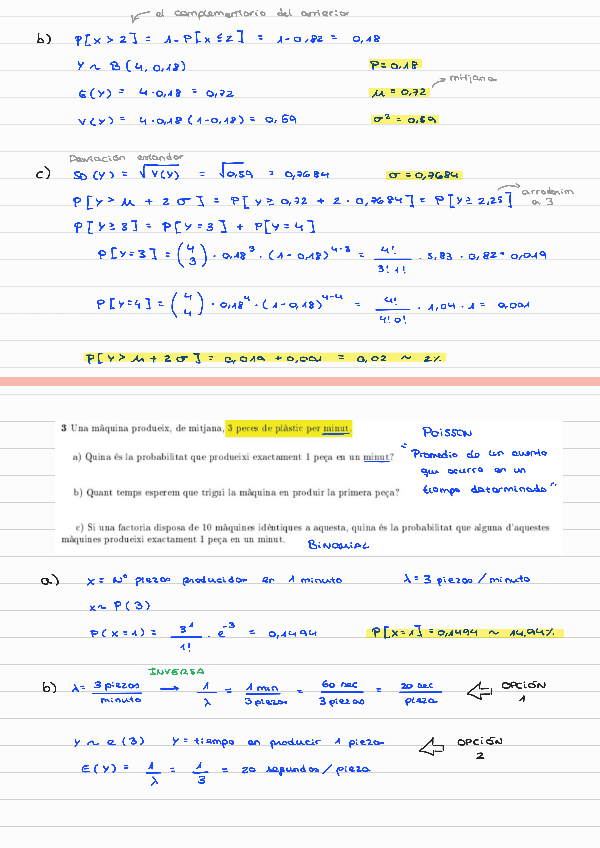 el complementario del anterior
b) P[x > 2] = 1 - P[x ≤ 2] = 1 - 0,82 = 0,18
Y ~ B(4, 0,18) P = 0,18
E(Y) = 4 · 0,18 = 0,72 μ = 0,72 mitjana
V(Y) = 4 · 0,18 (1 - 0,18) = 0,59 σ² = 0,59
Desviación estandar
c) SD(Y) = √V(Y) = √0,59 = 0,7684 σ = 0,7684
P[Y > μ + 2σ] = P[Y ≥ 0,72 + 2 · 0,7684] = P[Y ≥ 2,25] arrodonim a 3
P[Y ≥ 3] = P[Y = 3] + P[Y = 4]
P[Y = 3] = (4 3) · 0,18³ · (1 - 0,18)⁴⁻³ = 4! / 3! 1! · 5,83 · 0,82 = 0,019
P[Y = 4] = (4 4) · 0,18⁴ · (1 - 0,18)⁴⁻⁴ = 4! / 4! 0! · 1,04 · 1 = 0,001
P[Y > μ + 2σ] = 0,019 + 0,001 = 0,02 ~ 2%
3 Una màquina produeix, de mitjana, 3 peces de plàstic per minut.
POISSON
a) Quina és la probabilitat que produeixi exactament 1 peça en un minut?
"Promedio de un evento
que ocurra en un
tiempo determinado"
b) Quant temps esperem que trigui la màquina en produir la primera peça?
c) Si una factoria disposa de 10 màquines idèntiques a aquesta, quina és la probabilitat que alguna d'aquestes
màquines produeixi exactament 1 peça en un minut.
BINOMIAL
a) X = Nº piezas producidas en 1 minuto λ = 3 piezas / minuto
X ~ P(3)
P(X = 1) = 3¹ / 1! · e⁻³ = 0,1494 P[X = 1] = 0,1494 ~ 14,94%
INVERSA
b) λ = 3 piezas / minuto → 1 / λ = 1 min / 3 piezas = 60 sec / 3 piezas = 20 sec / pieza OPCIÓN 1
Y ~ e(3) Y = tiempo en producir 1 pieza OPCIÓN 2
E(Y) = 1 / λ = 1 / 3 = 20 segundos / pieza